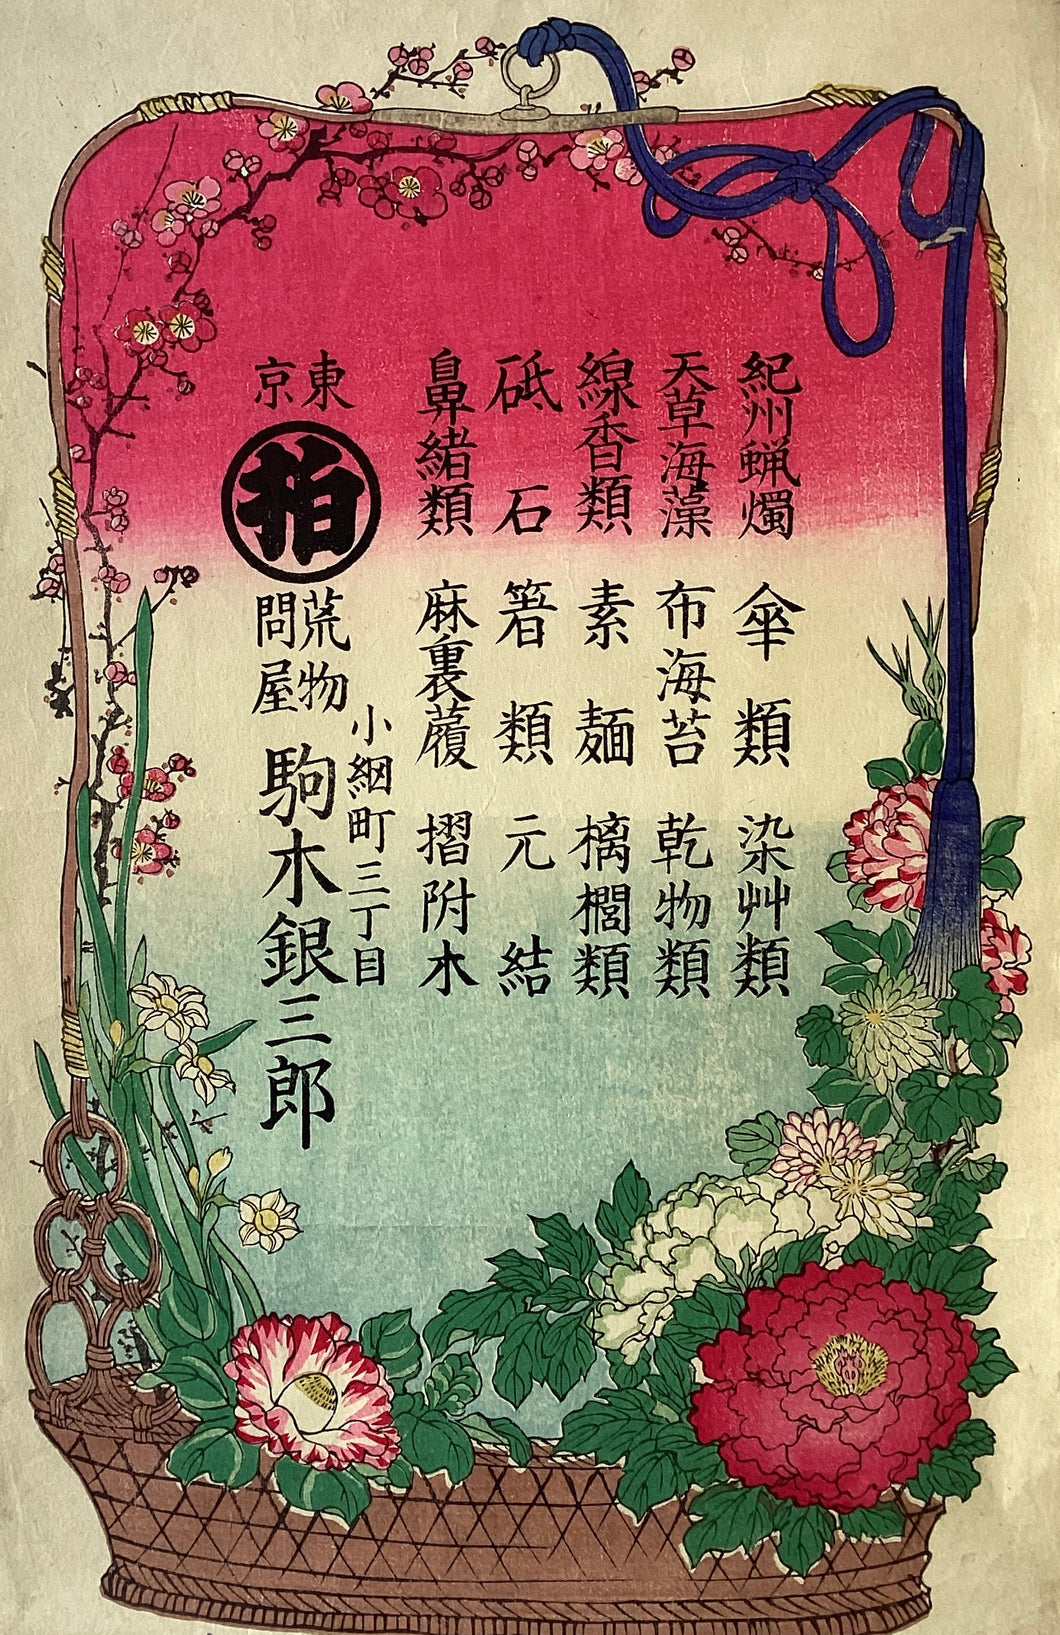 紀州蝋燭 傘類 染艸類
天草海藻 布海苔 乾物類
線香類 素麺 樆櫚類
砥石 箸類 元結
鼻緒類 麻裏履 摺附木
東京
拍
荒物問屋
小網町三丁目
駒木銀三郎